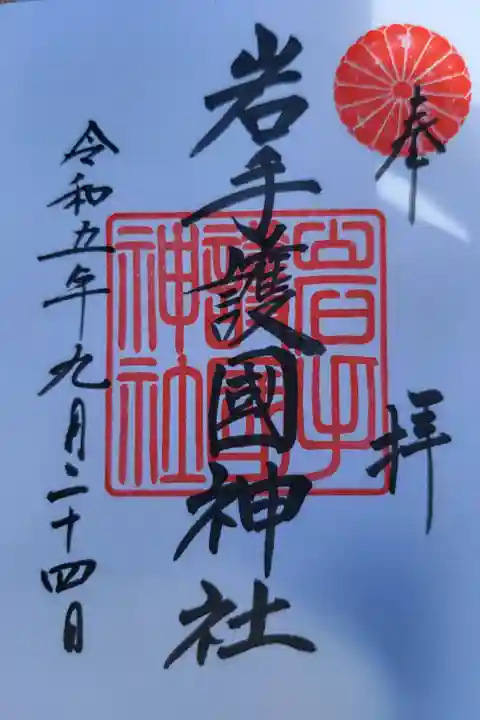 奉拝
岩手護國神社
岩手護國神社
令和五年九月二十四日